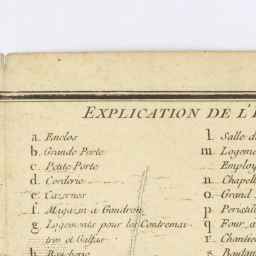 EXPLICATION DE L'
a. Enclos
b. Grande Porte
c. Petite Porte
d. Corderie
e. Casernes
f. Magazin a Gaudron
g. Logements pour les Contremai
tres et Galfat
h. 
l. Salle d
m. Logeme
Employ
n. Chapell
o. Grand
p. Peristill
q. Four a
r. Chantie
s.